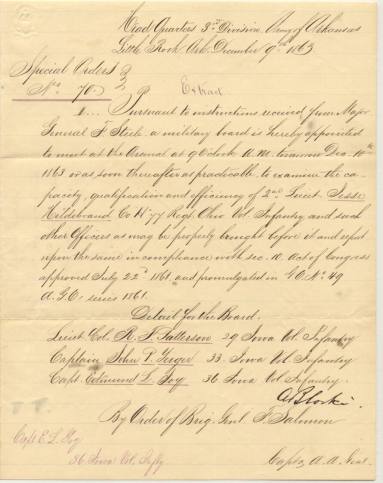 Head Quarters 3rd Division Army of Arkansas
Little Rock Ark. December 9th 1863
Special Orders
No. 70
Extract
1... Pursuant to instructions received from Major
General F. Steele a military board is hereby appointed
to meet at the Arsenal at 9 O'clock A.M. tomorrow Dec. 10th
1863 or as soon thereafter as practicable to examine the ca-
pacity, qualification and efficiency of 2nd Lieut. Jesse
Hildebrand Co. H 77 Regt. Ohio Vol. Infantry and such
other Officers as may be properly brought before it and report
upon the same in compliance with sec. 10 Act of Congress
approved July 22d 1861 and promulgated in G.O. No. 49
A.G.O. series 1861.
Detail for the Board.
Lieut. Col. R. F. Patterson 29 Iowa Vol. Infantry
Captain John P. Yerger 33. Iowa Vol. Infantry
Capt. Edmund L. Joy 36 Iowa Vol. Infantry.
By Order of Brig. Genl. F. Salomon
A. Blocki
Capt. E. L. Joy
36 Iowa Vol. Infty
Capt & A. A. Genl.